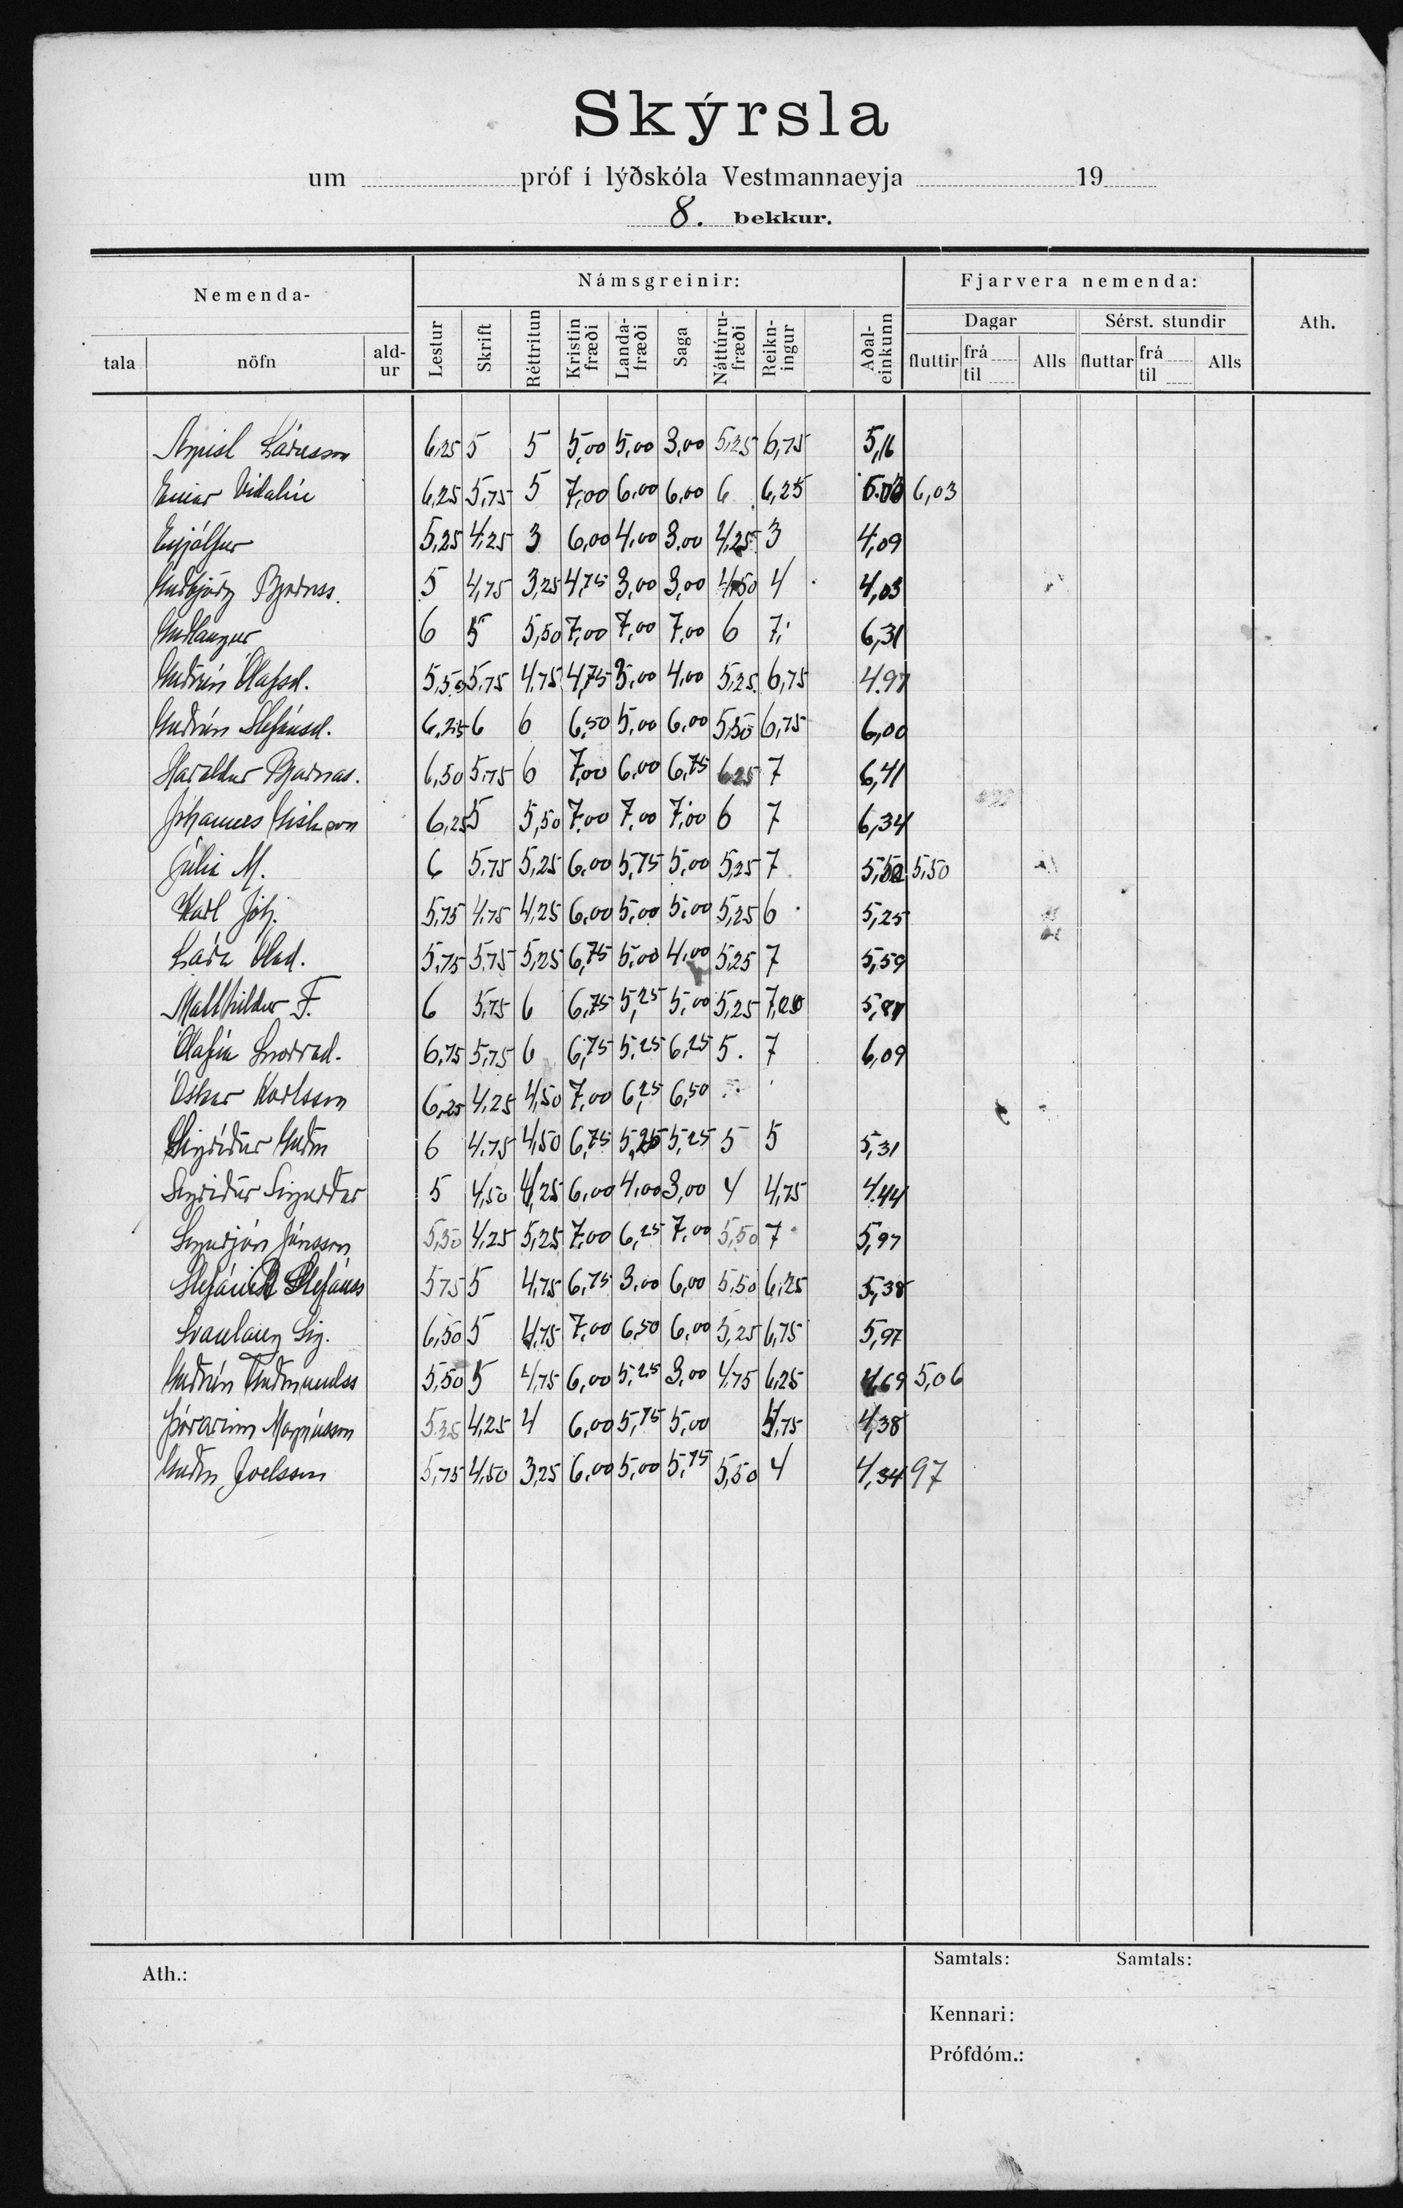 Skýrsla
um próf í lýðskóla Vestmannaeyja 19
8. bekkur.
Nemenda- Námsgreinir: Fjarvera nemenda: Ath.
Dagar Sérst. stundir
tala nöfn ald-ur Lestur Skrift Réttritun Kristin fræði Landa-fræði Saga Náttúru-fræði Reikn-ingur Aðal-einkunn fluttir frá til Alls fluttar frá til Alls
Lárusson 6,25 5 5 5,00 5,00 3,00 5,25 6,75 5,16
Einar Vidalín 6,25 5,75 5 7,00 6,00 6,00 6 6,25 6,03
Eyjólfur 5,25 4,25 3 6,00 4,00 3,00 4,25 3 4,09
Guðbjörg Bjarnss. 5 4,75 3,25 4,75 3,00 3,00 4,50 4 4,03
Guðlaugur 6 5 5,50 7,00 7,00 7,00 6 7, 6,31
Guðrún Ólafsd. 5,50 5,75 4,75 4,75 3,00 4,00 5,25 6,75 4.97
Guðrún Stefánsd. 6,25 6 6 6,50 5,00 6,00 5,50 6,75 6,00
Haraldur Bjarnas. 6,50 5,75 6 7,00 6,00 6,75 6,25 7 6,41
Jóhannes Gíslason 6,25 5 5,50 7,00 7,00 7,00 6 7 6,34
Júlía M. 6 5,75 5,25 6,00 5,75 5,00 5,25 7 5,50
Karl Jóh. 5,75 4,75 4,25 6,00 5,00 5,00 5,25 6 5,25
Lára Ólad. 5,75 5,75 5,25 6,75 5,00 4,00 5,25 7 5,59
Matthildur F. 6 5,75 6 6,75 5,25 5,00 5,25 7,00 5,87
Ólafía Snorrad. 6,75 5,75 6 6,75 5,25 6,25 5. 7 6,09
Óskar Karlsson 6,25 4,25 4,50 7,00 6,25 6,50
Sigríður Guðm 6 4,75 4,50 6,75 5,25 5,25 5 5 5,31
Sigríður Sigurðar 5 4,50 4,25 6,00 4,00 3,00 4 4,75 4.44
Sigurjón Jónsson 5,50 4,25 5,25 7,00 6,25 7,00 5,50 7 5,97
Stefánss 5,75 5 4,75 6,75 3,00 6,00 5,50 6,25 5,38
Svanlaug Sig. 6,50 5 4,75 7,00 6,50 6,00 5,25 6,75 5,97
Guðrún Guðmundss 5,50 5 4,75 6,00 5,25 3,00 4,75 6,25 4,69 5,06
Þórarinn Magnússon 5,25 4,25 4 6,00 5,75 5,00 4,75 4,38
Guðm Joelsson 5,75 4,50 3,25 6,00 5,00 5,75 5,50 4 4,34 97
Ath.: Samtals: Samtals:
Kennari:
Prófdóm.: